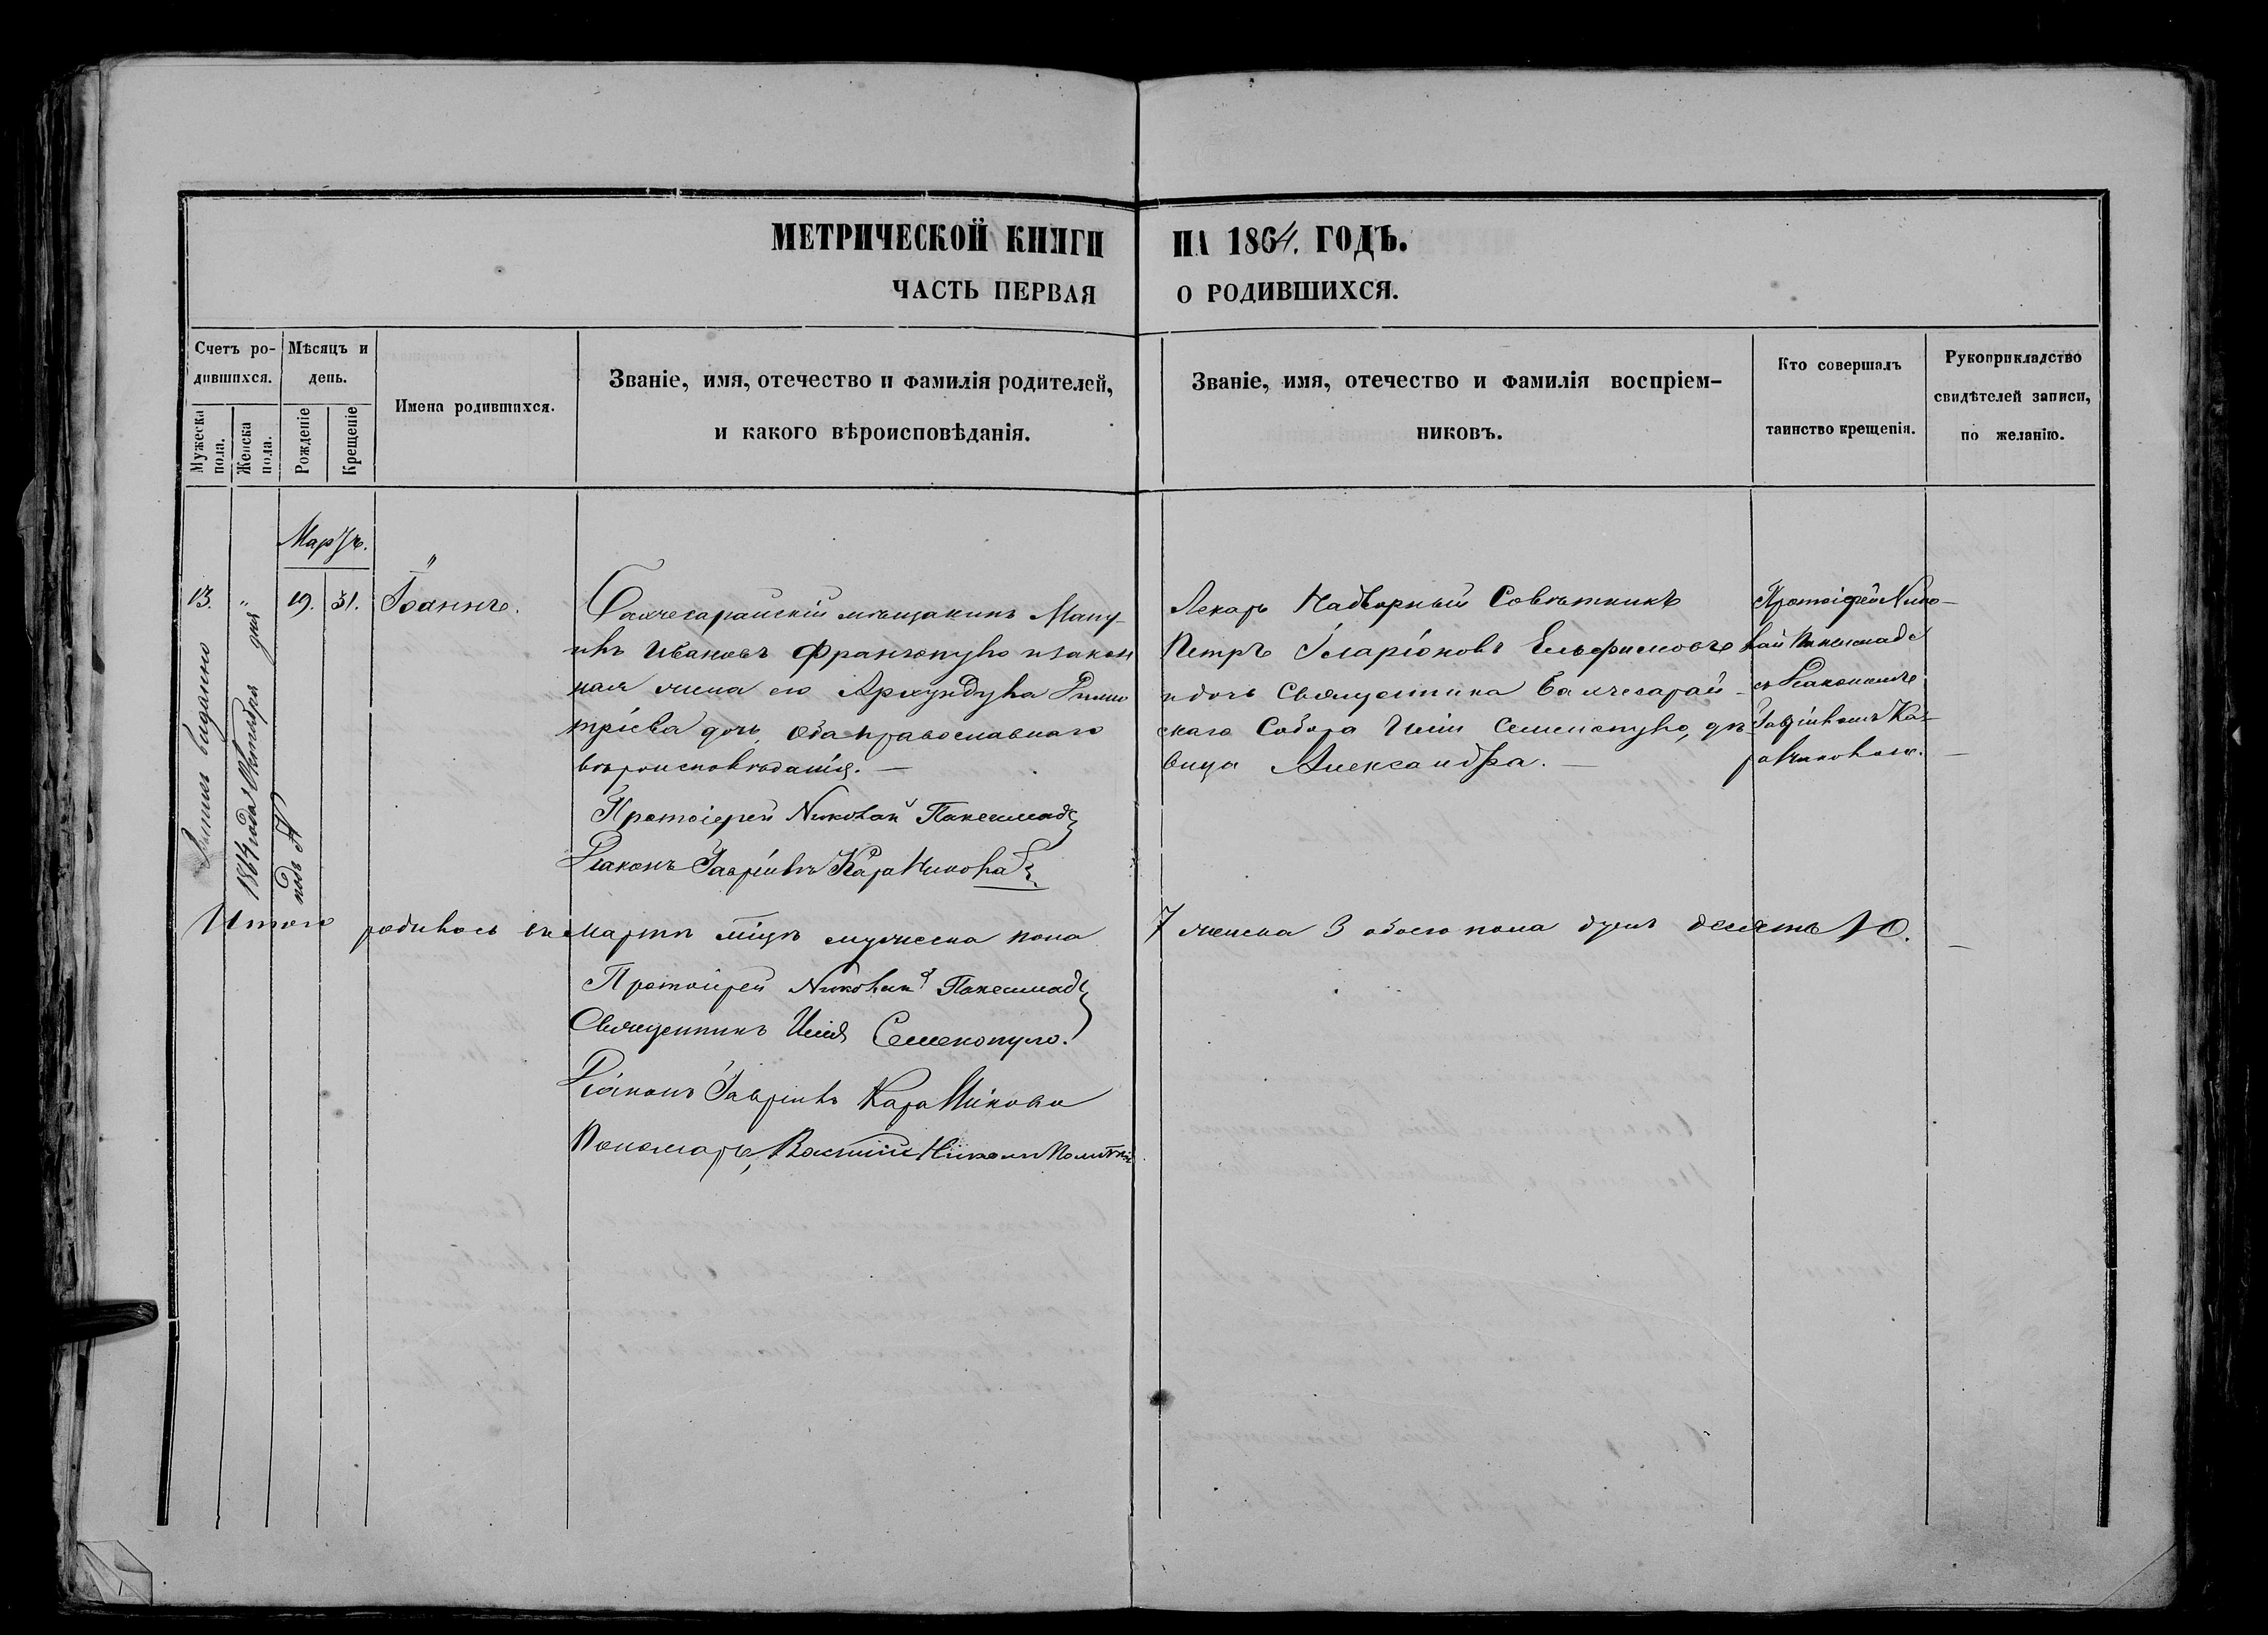 МЕТРИЧЕСКОЙ КНИГИ НА 1864. ГОДЪ.
ЧАСТЬ ПЕРВАЯ О РОДИВШИХСЯ.
Счетъ родившихся.
Мужеска пола.
Женска пола.
Мѣсяцъ и день.
Рожденіе
Крещеніе
Имена родившихся.
Званіе, имя, отечество и фамилія родителей,
и какого вѣроисповѣданія.
Званіе, имя, отечество и фамилія воспріем-
никовъ.
Кто совершалъ
таинство крещенія.
Рукоприкладство
свидѣтелей записи,
по желанію.
Мартъ.
13. " 19. 31. Іоаннъ.
Бахчесарайскій мѣщанинъ Ману-
илъ Ивановъ Франгопуло и закон
ная жена его Архундула Дими
тріева дочь, оба православнаго
вѣроисповѣданія. —
Протоіерей Николай Паксимаде
Діаконъ Гавріилъ
Лекарь Надворный Совѣтникъ
Петръ Иларіоновъ
и дочь Священника Бахчесарай-
скаго Собора Иліи Семенопуло, дѣ-
вица Александра. —
Протоіерей Нико-
лай Паксимаде
съ Діакономъ
Гавріиломъ Ка-
выдано
1864 года Октября дня
подъ №
Итого родилось въ Мартѣ мцѣ мужеска пола 7 женска 3 обоего пола душъ десять 10. —
Протоіерей Николай Паксимаде
Священникъ Илія Семенопуло.
Діаконъ Гавріилъ
Пономарь, Василій